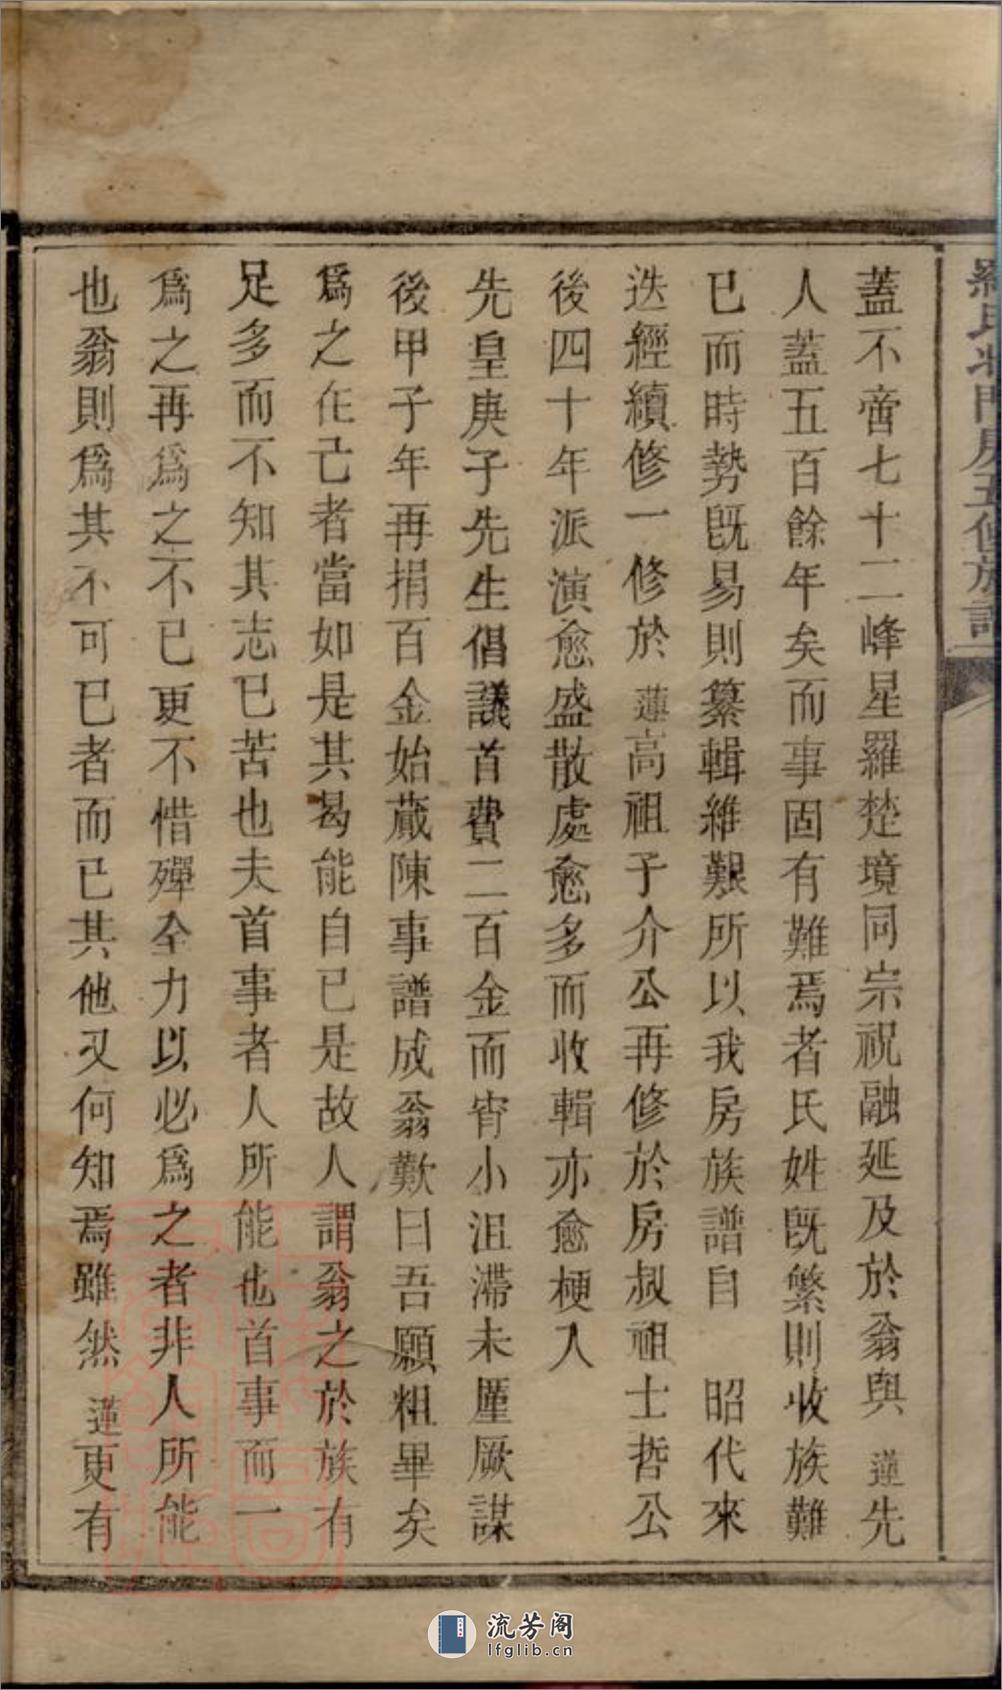 羅氏北門房五修族譜
蓋不啻七十二峰星羅楚境同宗祝融延及於翁與蓮先
人蓋五百餘年矣而事固有難焉者氏姓旣繁則收族難
已而時勢旣易則纂輯維艱所以我房族譜自 昭代來
迭經續修一修於蓮高祖子介公再修於房叔祖士哲公
後四十年派演愈盛散處愈多而收輯亦愈梗入
先皇庚子先生倡議首費二百金而宵小沮滯未厪厥謀
後甲子年再捐百金始蕆陳事譜成翁歎曰吾願粗畢矣
爲之在己者當如是其曷能自已是故人謂翁之於族有
足多而不知其志已苦也夫首事者人所能也首事而一
爲之再爲之不已更不惜殫全力以必爲之者非人所能
也翁則爲其不可已者而已其他又何知焉雖然蓮更有
流芳阁
lfglib.cn